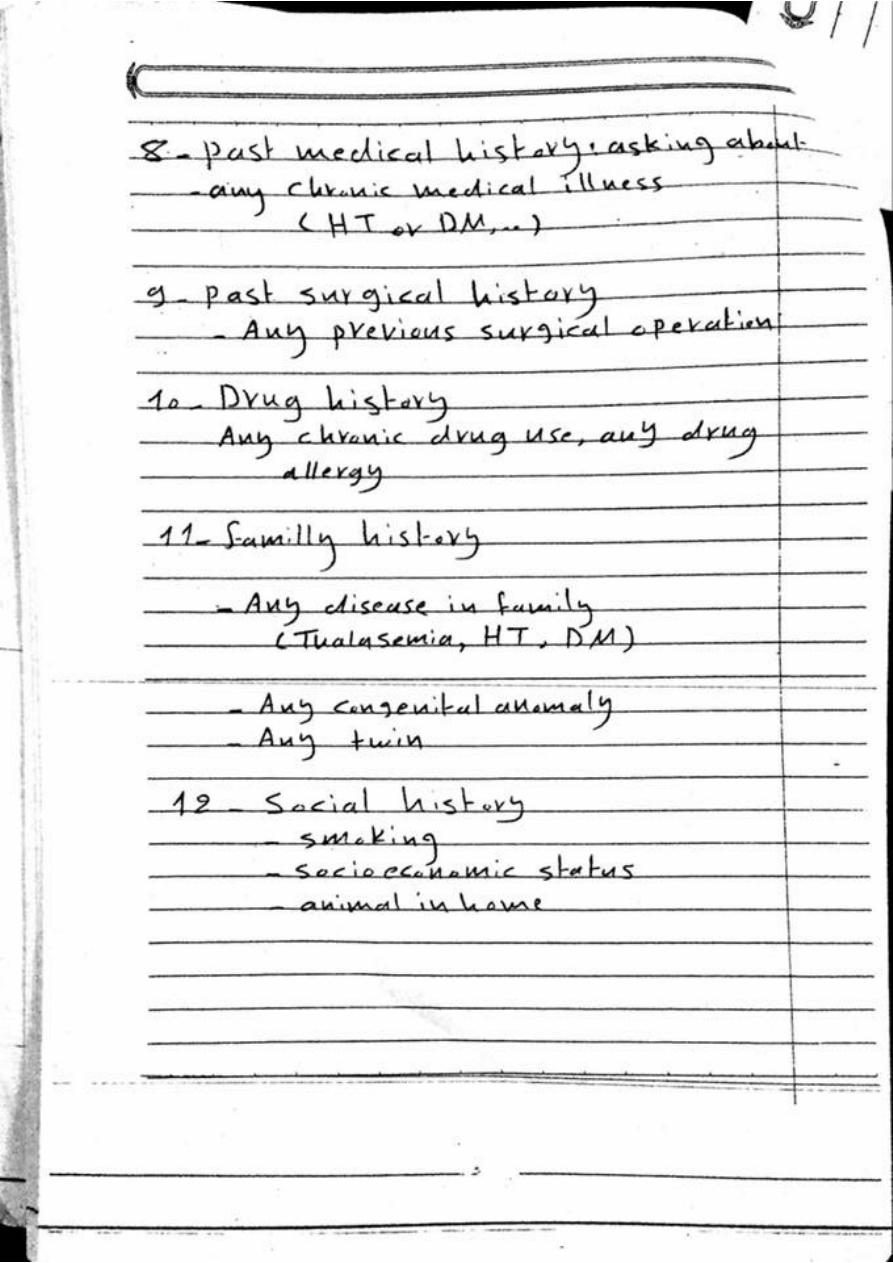 8 - past medical history: asking about
- any chronic medical illness
(HT or DM,..)
9 - past surgical history
- Any previous surgical operation
10 - Drug history
Any chronic drug use, any drug
allergy
11 - familly history
- Any disease in family
(Thalasemia, HT, DM)
- Any congenital anomaly
- Any twin
12 - Social history
- smoking
- socioeconomic status
- animal in home